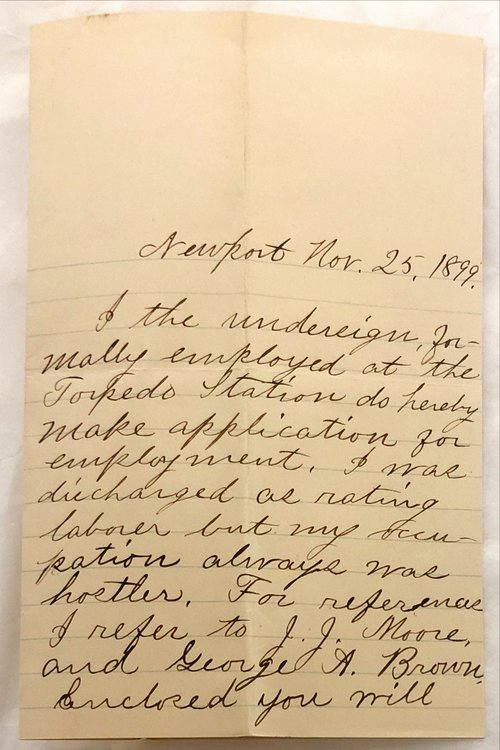 Newport Nov. 25, 1899.
I the undersign, for-
mally employed at the
Torpedo Station do hereby
make application for
employment. I was
discharged as rating
laborer but my occu-
pation always was
hostler. For references
I refer to J. J. Moore,
and George A. Brown.
Enclosed you will